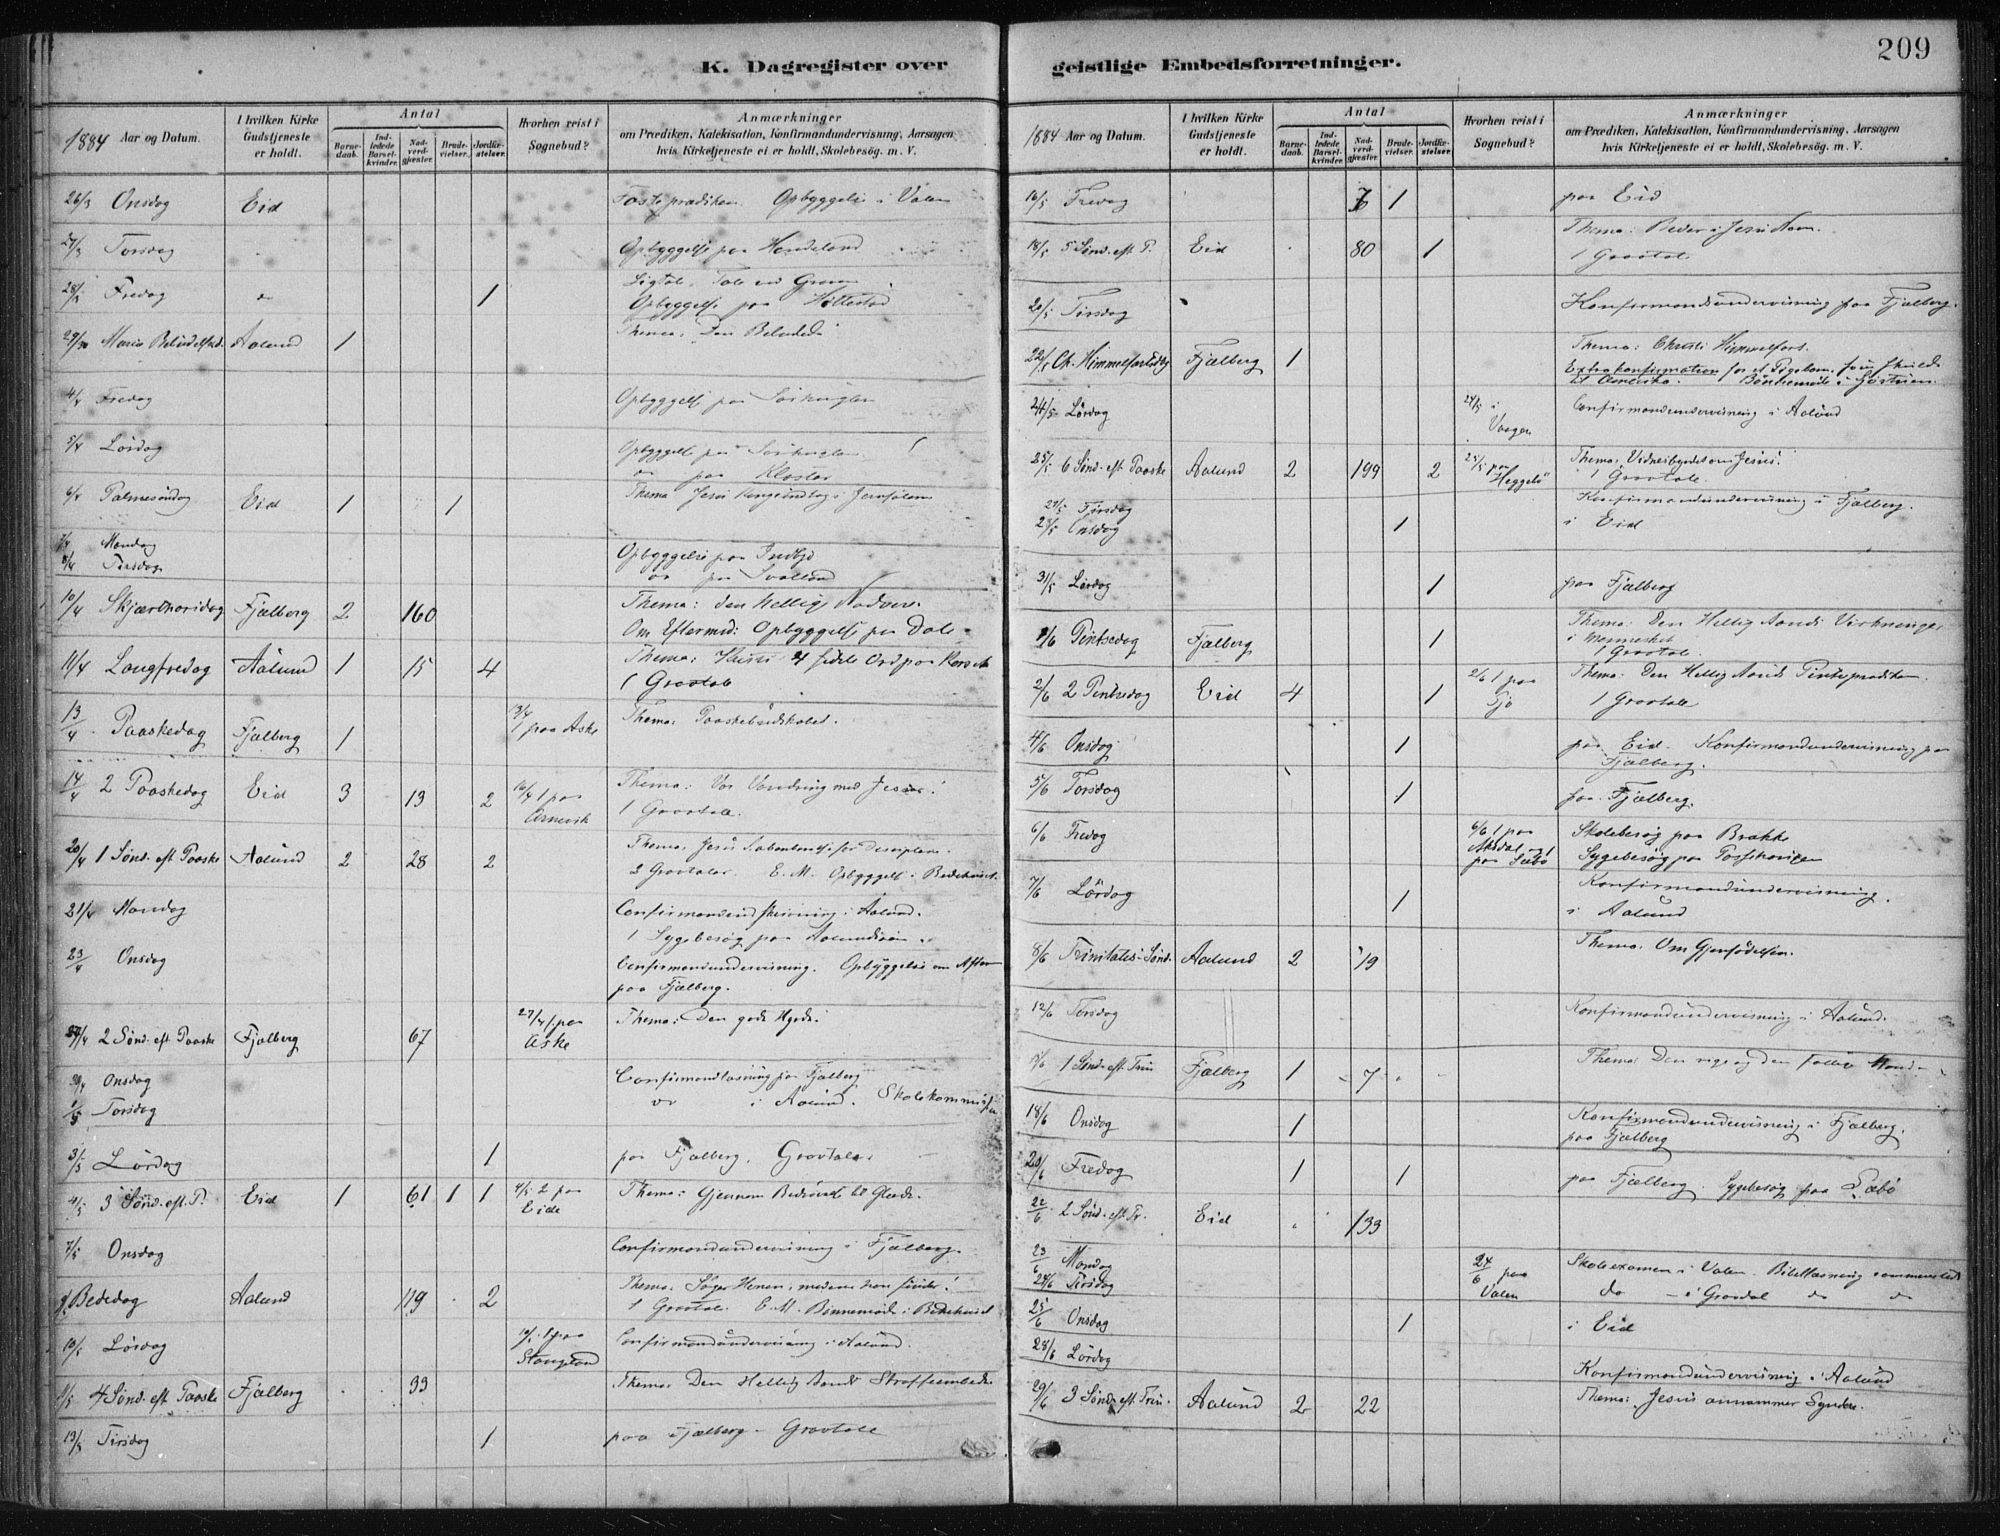 209
K. Dagregister over geistlige Embedsforretninger.
1884 Aar og Datum.
I hvilken Kirke Gudstjeneste er holdt.
Antal
Barnedaab.
Indledede Barselkvinder.
Nadverdgjester.
Brudevielser.
Jordfæstelser.
Hvorhen reist i Sognebud?
Anmærkninger
om Prædiken, Katekisation, Konfirmandundervisning, Aarsagen
hvis Kirketjeneste ei er holdt, Skolebesög. m. V.
26/3 Onsdag Eid Fasteprædiken. Opbyggelse i Valen
27/3 Torsdag Opbyggelse paa
28/3 Fredag 1 Tale ved Graven
Opbyggelse paa
Maria Aalund 1 Thema: Den
4/4 Fredag Opbyggelse paa
5/4 Lørdag Opbyggelse paa
paa Kloster
6/4 Palmesöndag Eid 1 1 Thema Jesu i
7/4 Mandag
8/4 Tirsdag Opbyggelse paa
paa
10/4 Skjærthorsdag Fjælberg 2 160 Thema: den Hellige Nadvere.
Om Eftermid: Opbyggelse paa Dale
11/4 Langfredag Aalund 1 15 4 Thema: Ord paa Korset
1 Gravtale
13/4 Paaskedag Fjælberg 1 13/4 1 paa Aske Thema: Paaskebudskabet.
14/4 2 Paaskedag Eid 3 13 2 1 paa Thema: Vor Vandring med Jesus!
1 Gravtale.
20/4 1 Sönd. eft Paaske Aalund 2 28 2 Thema, Jesu
2 Gravtaler. E. M. Opbyggelse i Bedehuset.
21/4 Mandag i Aalund.
1 Sygebesøg paa
23/4 Onsdag Confirmandundervisning. Opbyggelse om Aften
paa Fjælberg.
27/4 2 Sönd. eft. Paaske Fjælberg 67 27/4 1 paa Aske Thema: Den gode Hyrde!
30/4 Onsdag paa Fjælberg
1/5 Torsdag i Aalund. Skolekommission
3/5 Lørdag 1 paa Fjælberg. Gravtale.
4/5 3 Sönd. eft. P. Eid 1 61 1 1 4/5 2 paa Eide Thema: Gjennem til Glæde.
7/5 Onsdag Confirmandundervisning i Fjælberg.
Bededag Aalund 119 2 Thema: Søger Herren, medens han findes!
1 Gravtale. E. M. i Bedehuset
10/5 Lørdag 10/5 1 paa Confirmandundervisning i Aalund.
11/5 4 Sönd. eft Paaske Fjælberg 33 Thema: Den Hellig Aands Straffeembede
13/5 Tirsdag 1 paa Fjælberg. Gravtale
1884 Aar og Datum.
I hvilken Kirke Gudstjeneste er holdt.
Antal
Barnedaab.
Indledede Barselkvinder.
Nadverdgjester.
Brudevielser.
Jordfæstelser.
Hvorhen reist i Sognebud?
Anmærkninger
om Prædiken, Katekisation, Konfirmandundervisning, Aarsagen
hvis Kirketjeneste ei er holdt, Skolebesög. m. V.
16/5 Fredag 1 paa Eid
18/5 5 Sönd. eft P. Eid 80 1 Thema: Beder i Jesu Navn.
1 Gravtale
20/5 Tirsdag Konfirmandundervisning paa Fjælberg.
22/5 Ch. Himmelfartsdag Fjælberg 1 Thema: Christi Himmelfart.
Extrakonfirmation for et
til Amerika.
24/5 Lördag 24/5 i Vaagen Confirmandundervisning i Aalund
25/5 6 Sönd. eft Paaske Aalund 2 199 2 25/5 paa Thema: Vidnesbyrdet om Jesus!
1 Gravtale.
27/5 Tirsdag Konfirmandundervisning i Fjælberg.
28/5 Onsdag 1 i Eid
31/5 Lørdag 1 paa Fjælberg
1/6 Pintsedag Fjælberg 1 Thema: Den Hellig Aands Virkninger
i Mennesket
1 Gravtale.
2/6 2 Pintsedag Eid 4 1 2/6 1 paa Thema: Den Hellig Aands Pintseprædiken.
1 Gravtale
4/6 Onsdag 1 paa Eid. Konfirmandundervisning paa
Fjælberg.
5/6 Torsdag 1 paa Fjælberg.
6/6 Fredag 6/6 1 paa og 1 paa Sæbö Skolebesøg paa Brakke
Sygebesøg paa
7/6 Lördag 1 Konfirmandundervisning.
i Aalund
8/6 Trinitatis-Sönd. Aalund 2 19 Thema: Om Gjenfödelsen.
12/6 Torsdag Konfirmandundervisning i Aalund.
15/6 1 Sönd. eft. Trin Fjælberg 1 7 Thema: Den rige og den fattige Mand
18/6 Onsdag 1 Konfirmandundervisning i Fjælberg.
paa Fjælberg
20/6 Fredag 1 1 paa Fjælberg. Sygebesøg paa Sæbö
22/6 2 Sönd. eft. Tr. Eid 133
23/6 Mandag 24/6 paa Valen Skoleexamen i Valen. Bibellæsning sammesteds
24/6 Tirsdag do – i do do
25/6 Onsdag 1 i Eid
28/6 Lördag Konfirmandundervisning i Aalund
29/6 3 Sönd. eft Trin. Aalund 2 22 Thema: Jesus annammer Syndere.